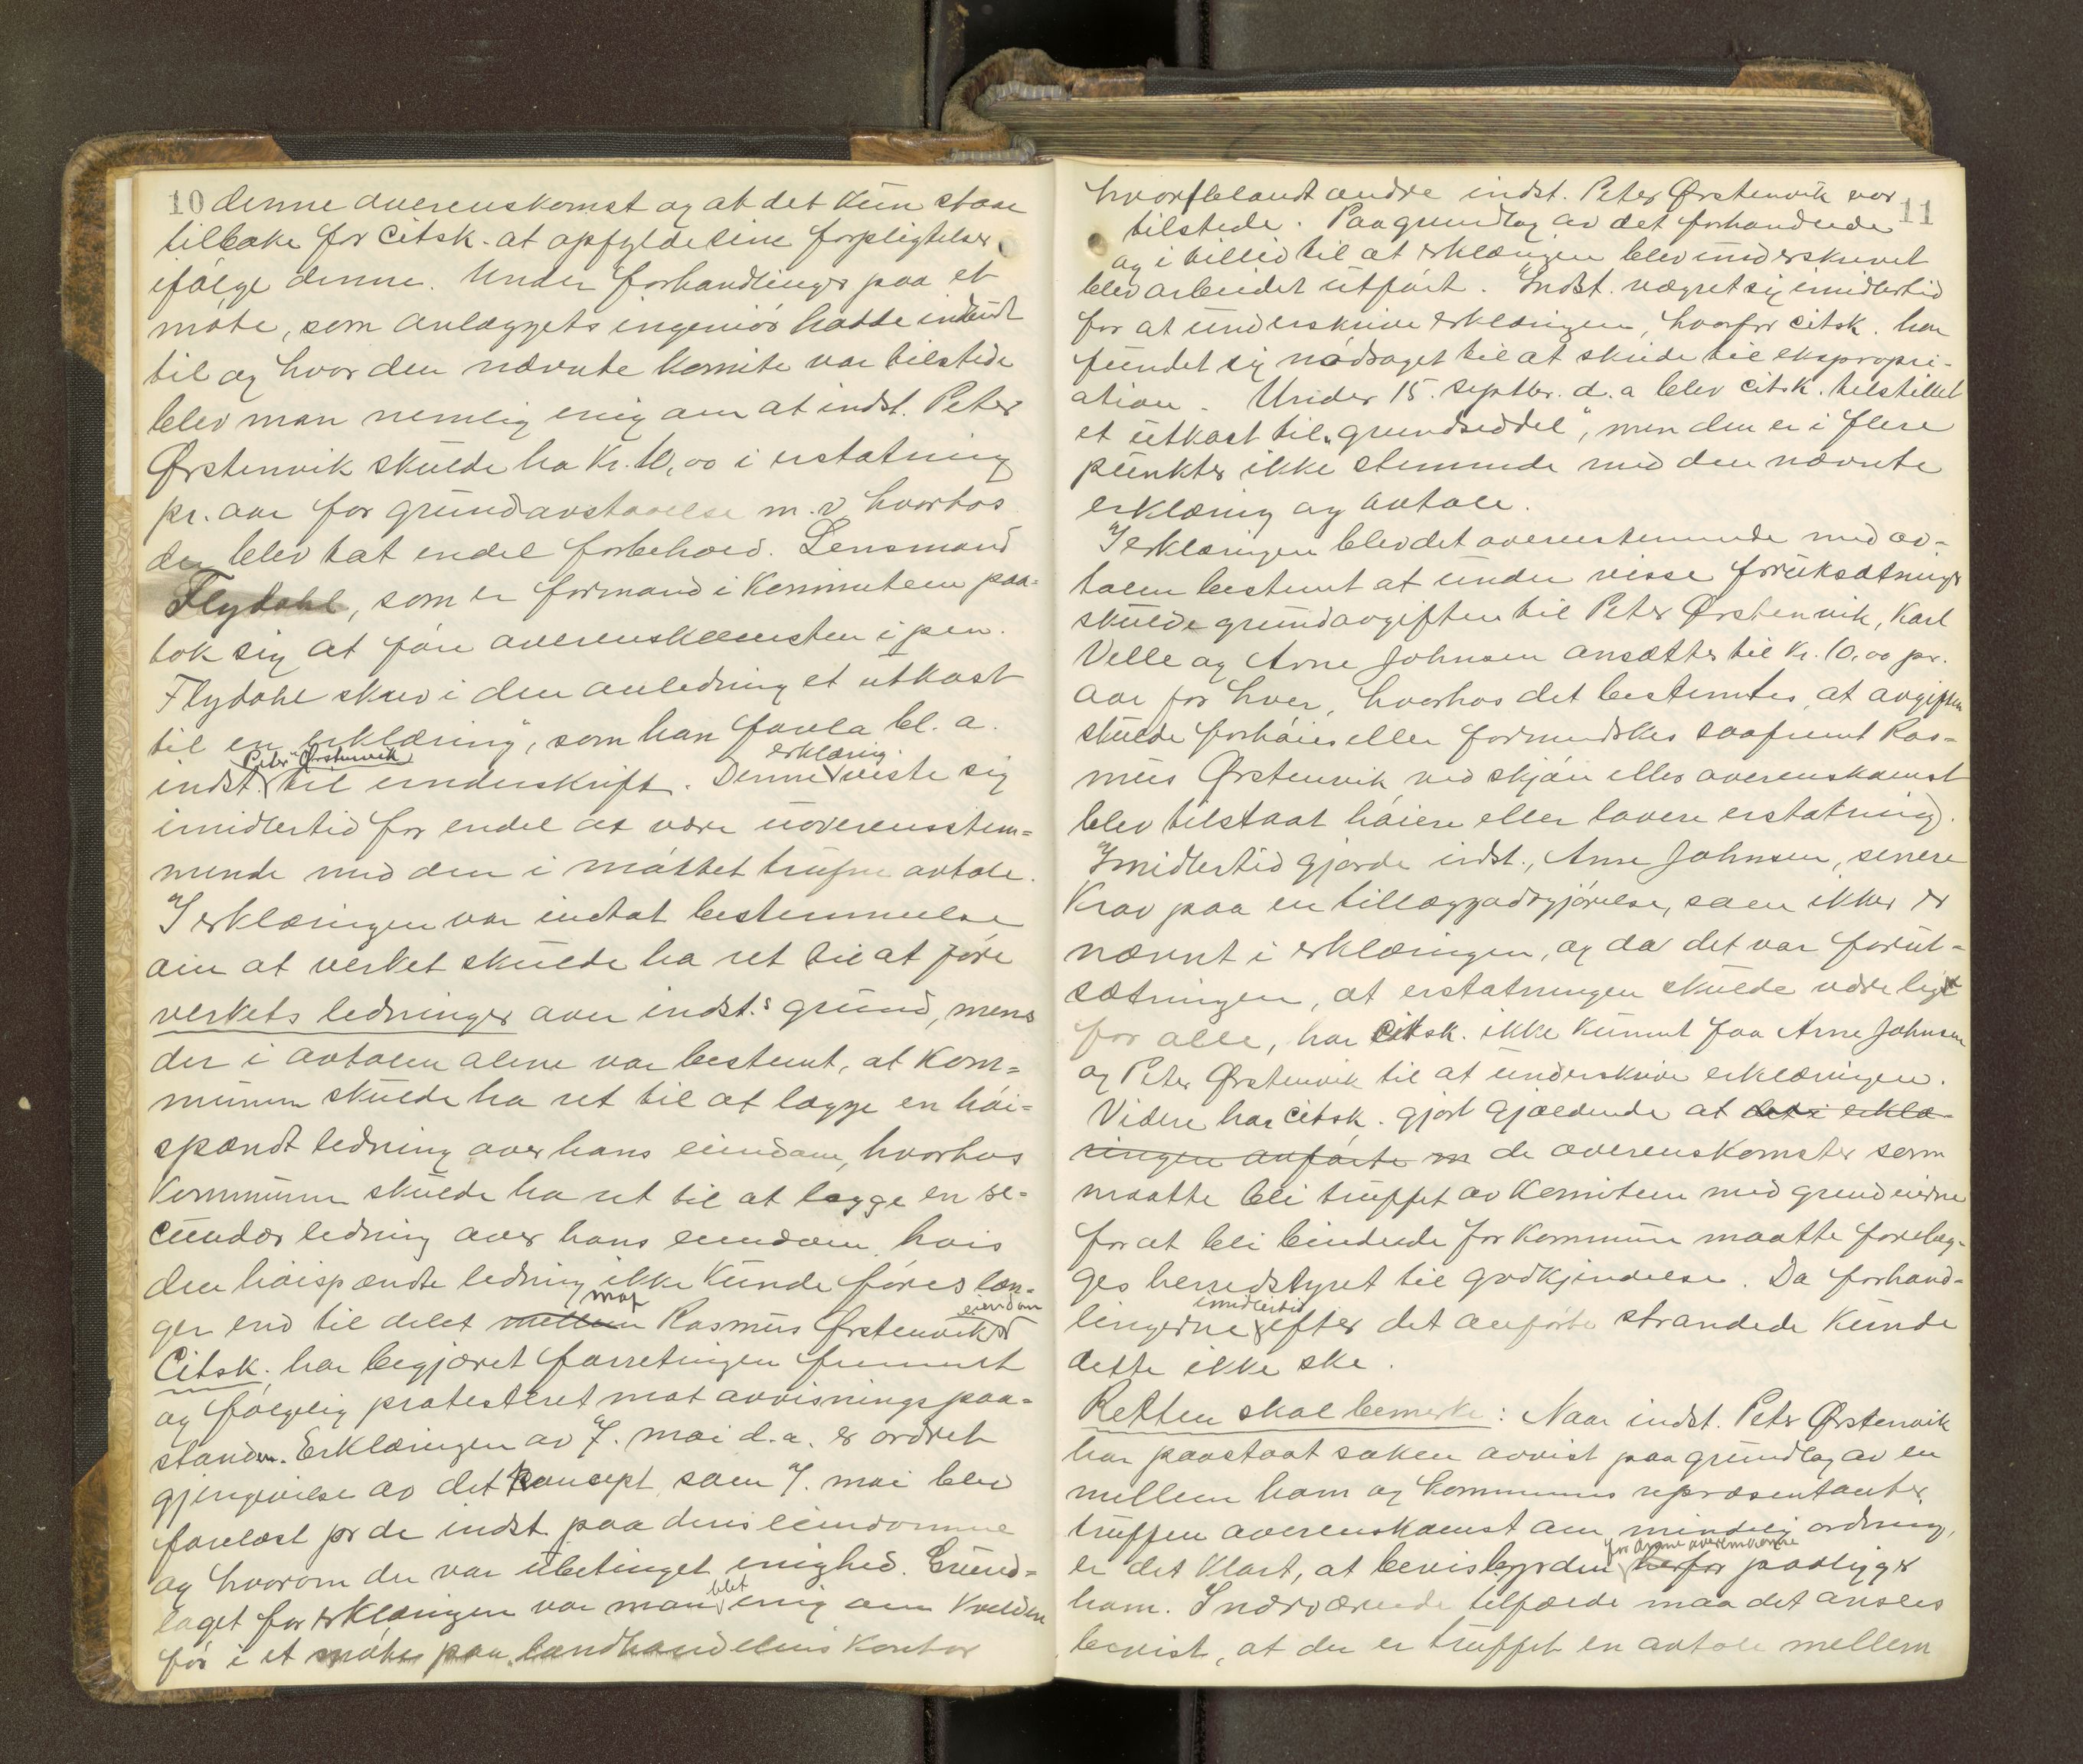 10 denne overenskomst og at det kun staar
tilbake for citsk. at opfylde sine forpligtelser
ifølge denne. Under forhandlinger paa et
møte, som anlæggets ingeniør hadde indbudt
til og hvor den nævnte komite var tilstede
blev man nemlig enig om at indst. Peter
Ørstenvik skulde ha kr. 10,00 i erstatning
pr. aar for grundavstaaelse m.v hvorhos
der blev tat endel forbehold. Lensmand
Flydahl, som er formand i komiteen paa-
tok sig at føre overenskomsten i pen.
Flydahl skrev i den anledning et utkast
til en "erklæring", som han forela bl. a.
indst. Peter Ørstenvik til underskrift. Denne erklæring viste sig
imidlertid for endel at være uoverensstem-
mende med den i møttet trufne avtale.
I erklæringen var indtat bestemmelse
om at verket skulde ha ret til at føre
verkets ledninger over indst.s grund, mens
der i avtalen alene var bestemt, at kom-
munen skulde ha ret til at lægge en høi-
spændt ledning over hans eiendom, hvorhos
kommunen skulde ha ret til at lægge en se-
cundær ledning over hans eiendom, hvis
den høispændte ledning ikke kunde føres læn-
ger end til delet mellem mot Rasmus Ørstenviks eiendom
Citsk. har begjæret forretningen fremmet
og følgelig protesteret mot avvisningspaa-
standen. Erklæringen av 7. mai d.a. er ordret
gjengivelse av det koncept som 7. mai blev
forelæst for de indst. paa deres eiendomme
og hvorom der var ubetinget enighed. Grund-
laget for erklæringen var man blet enig om kvelden
før i et møte paa landhandelens kontor
hvor blandt andre indst. Peter Ørstenvik var 11
tilstede. Paa grundlag av det forhandlede
og i tillid til at erklæringen blev underskrevet
blev arbeidet utført. Indst. vægret sig imidlertid
for at underskrive erklæringen, hvorfor citsk. har
fundet sig nødsaget til at skride til ekspropri-
ation. Under 15. septbr. d.a blev citsk. tilstillet
et utkast til "grundseddel", men den er i flere
punkter ikke stemmende med den nævnte
erklæring og avtale.
I erklæringen blev det overenstemmende med av-
talen bestemt at under visse forutsætninger
skulde grundavgiften til Peter Ørstenvik, Karl
Velle og Arne Johnsen ansættes til kr. 10,00 pr.
aar for hver, hvorhos det bestemtes, at avgiften
skulde forhøies eller formindskes saafremt Ras-
mus Ørstenvik ved skjøn eller overenskomst
blev tilstaat høiere eller lavere erstatning).
Imidlertid gjorde indst., Arne Johnsen, senere
krav paa en tillæggodtgjørelse, som ikke er
nævnt i erklæringen, og da det var forut-
sætningen, at erstatningen skulde være lige
for alle, har citsk. ikke kunnet faa Arne Johnsen
og Peter Ørstenvik til at underskrive erklæringen.
Videre har citsk. gjort gjældende at det i erklæ-
ringen anførte m de overenskomster som
maatte bli truffet av komiteen med grundeierne
for at bli bindende for kommunen maatte forelæg-
ges herredstyret til godkjendelse. Da forhand-
lingerne imidlertid efter det anførte strandede kunde
dette ikke ske.
Retten skal bemerke: Naar indst. Peter Ørstenvik
har paastaat saken avvist paa grundlag av en
mellem ham og kommunens repræsentanter
truffen overenskomst om mindelig ordning,
er det klart, at bevisbyrden herfor for denne paaligger
ham. I nærværende tilfælde maa det ansees
bevist, at der er truffet en avtale mellem